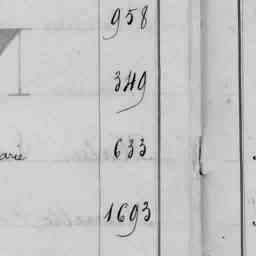 958
349
arie 633
1693